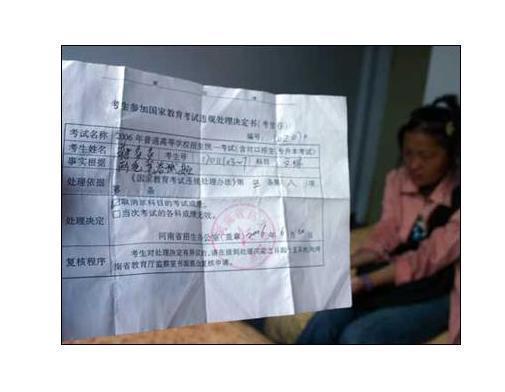 考生参加国家教育考试违规处理决定书(考生存)
编号:
考试名称 2006年普通高等学校招生统一考试(含对口招生、专升本考试)
考生姓名 考生号 科目 文综
事实根据
处理依据 《国家教育考试违规处理办法》第 条第 八 项
第 条
处理决定
取消该科目的考试成绩。
当次考试的各科成绩无效。
河南省招生办公室(盖章) 2006年6月 日
复核程序
考生对处理决定有异议的,请在接到处理决定之日起十五日内向河
南省教育厅监察室书面提出复核申请。